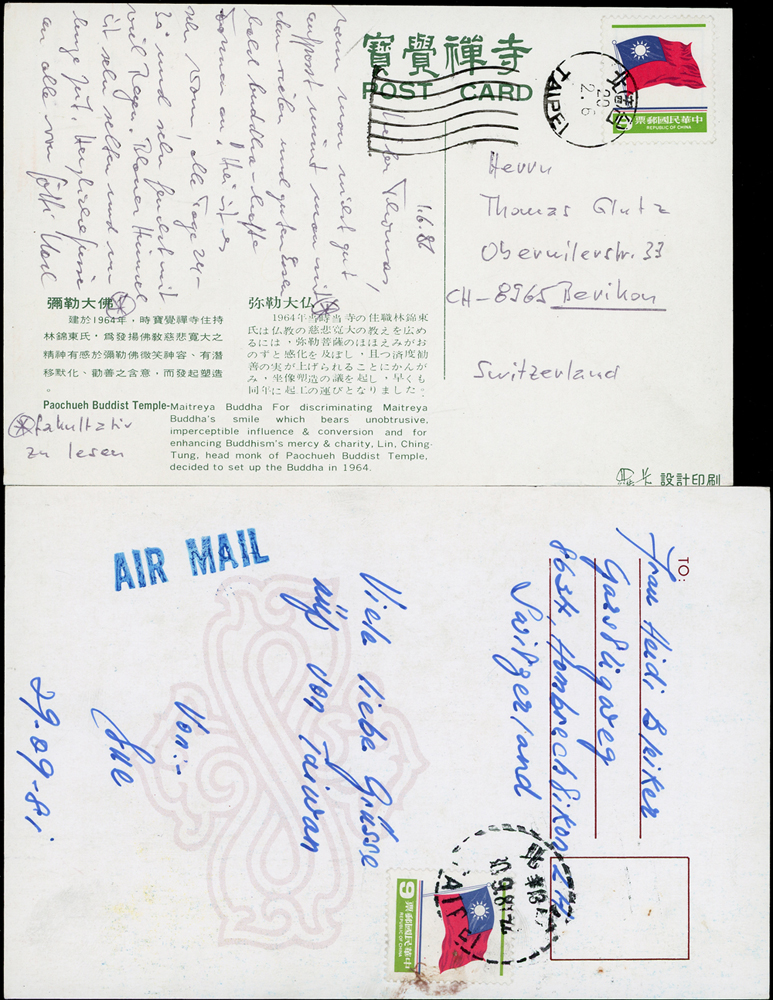 寶覺禪寺
POST CARD
TAIPEI
20
2.6
中華民國郵票
REPUBLIC OF CHINA
1.6.82
Lieber Thomas,
wenn man nicht gut
aufpasst nimmt man mit
den vielen und guten Essen
bald buddha-hafte
Formen an! Hier ist es
sehr warm, alle Tage 24-
und sehr feucht mit
viel Regen. Blauer Himmel
ist sehr selten und nie
lange gut. Herzliche Grüsse
an alle von Götti Karl
Herrn
Thomas Glutz
Oberwilerstr. 33
CH-8965 Berikon
Switzerland
彌勒大佛
建於1964年，時寶覺禪寺住持
林錦東氏，爲發揚佛教慈悲寬大之
精神有感於彌勒佛微笑神容、有潛
移默化、勸善之含意，而發起塑造
弥勒大仏
1964年当時当寺の住職林錦東
氏は仏教の慈悲寬大の教えを広め
るには，弥勒菩薩のほほえみがお
のずと感化を及ぼし，且つ済度勧
善の実が上げられることにかんが
み，坐像塑造の議を起し，早くも
同年に起工の運びとなりました。
Paochueh Buddist Temple-Maitreya Buddha For discriminating Maitreya
Buddha's smile which bears unobtrusive,
imperceptible influence & conversion and for
enhancing Buddhism's mercy & charity, Lin, Ching-
Tung, head monk of Paochueh Buddist Temple,
decided to set up the Buddha in 1964.
fakultativ
zu lesen
設計印刷
AIR MAIL
TO:
Frau Heidi
Switzerland
Viele liebe Grüsse
aus von Taiwan
Von:-
29-09-81
9
中華民國郵票
REPUBLIC OF CHINA
TAIPEI